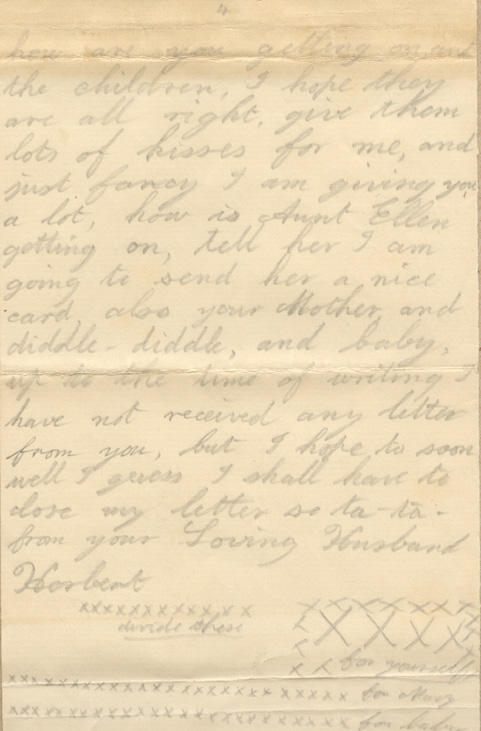 4
how are you getting on, and
the children, I hope they
are all right, give them
lots of kisses for me, and
just fancy I am giving you
a lot, how is Aunt Ellen
getting on, tell her I am
going to send her a nice
card, also your Mother, and
diddle-diddle, and baby,
up to the time of writing I
have not received any letter
from you, but I hope to soon
well I guess I shall have to
close my letter so ta-ta-
from your Loving Husband
Herbert
xxxxxxxxxxxx
divide these
for yourself
for Mary
for baby